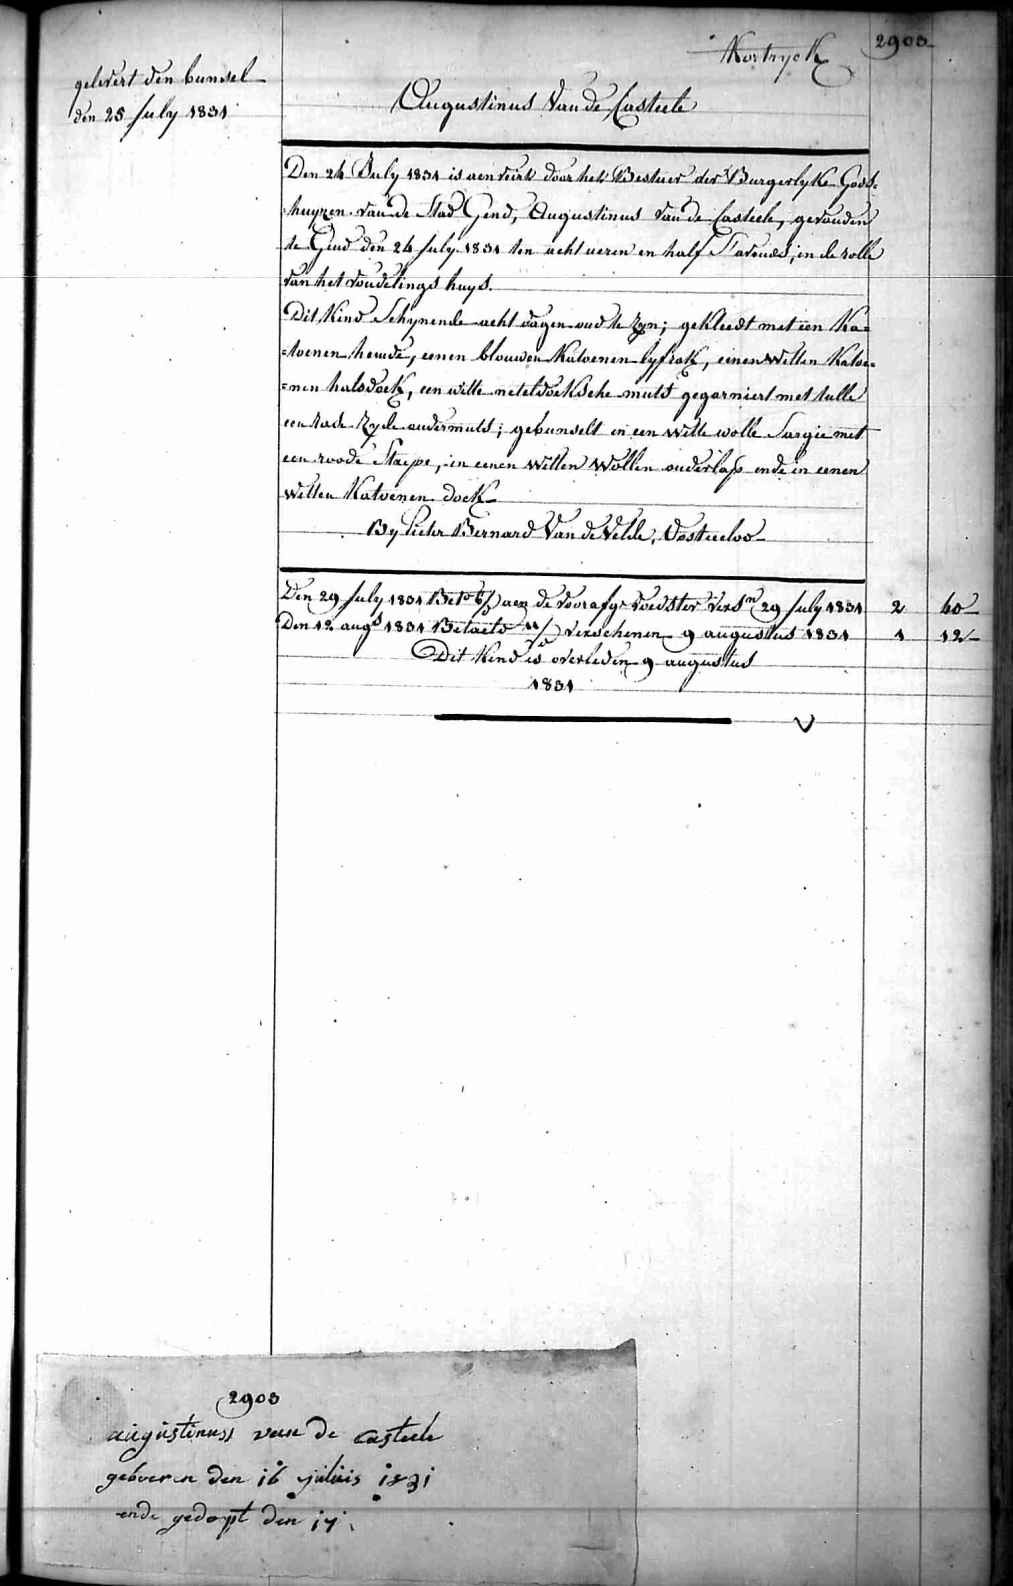 Kortryck
2903
gelevert den bunsel
den 25 July 1831
Augustinus Van de Casteele
Den 24 July 1831 is aenveirt door het Bestuer der Burgerlyke Gods=
=huyzen van de Stad Gend, Augustinus Van de Casteele, gevonden
te Gend den 24 July 1831 ten acht ueren en half s'avonds, in de rolle
van het vondelings huys.
Dit Kind Schynende acht dagen oud te zyn; gekleedt met een Ka=
=toenen hemde, eenen blouwen Katoenen lyfrok, eenen Witten Katoe=
=nen halsdoek, een witte neteldoeksche muts gegarniert met tulle
een rode Zyde ondermuts; gebunselt in een Witte wolle Sargie met
een roode Staepe, in eenen Witten Wollen onderlap ende in eenen
Witten Katoenen doek
By Pieter Bernard Van de Velde, Oosteeloo
Den 29 July 1831 Bet. aen de voorafg. voedster vers.n 29 July 1831 2 40
Den 12 aug.s 1831 Betaelt verschenen 9 augustus 1831 1 12
Dit Kind is overleden 9 augustus
1831
2903
augustinus van de casteele
geboren den 16 juluis 1831
ende gedopt den 17